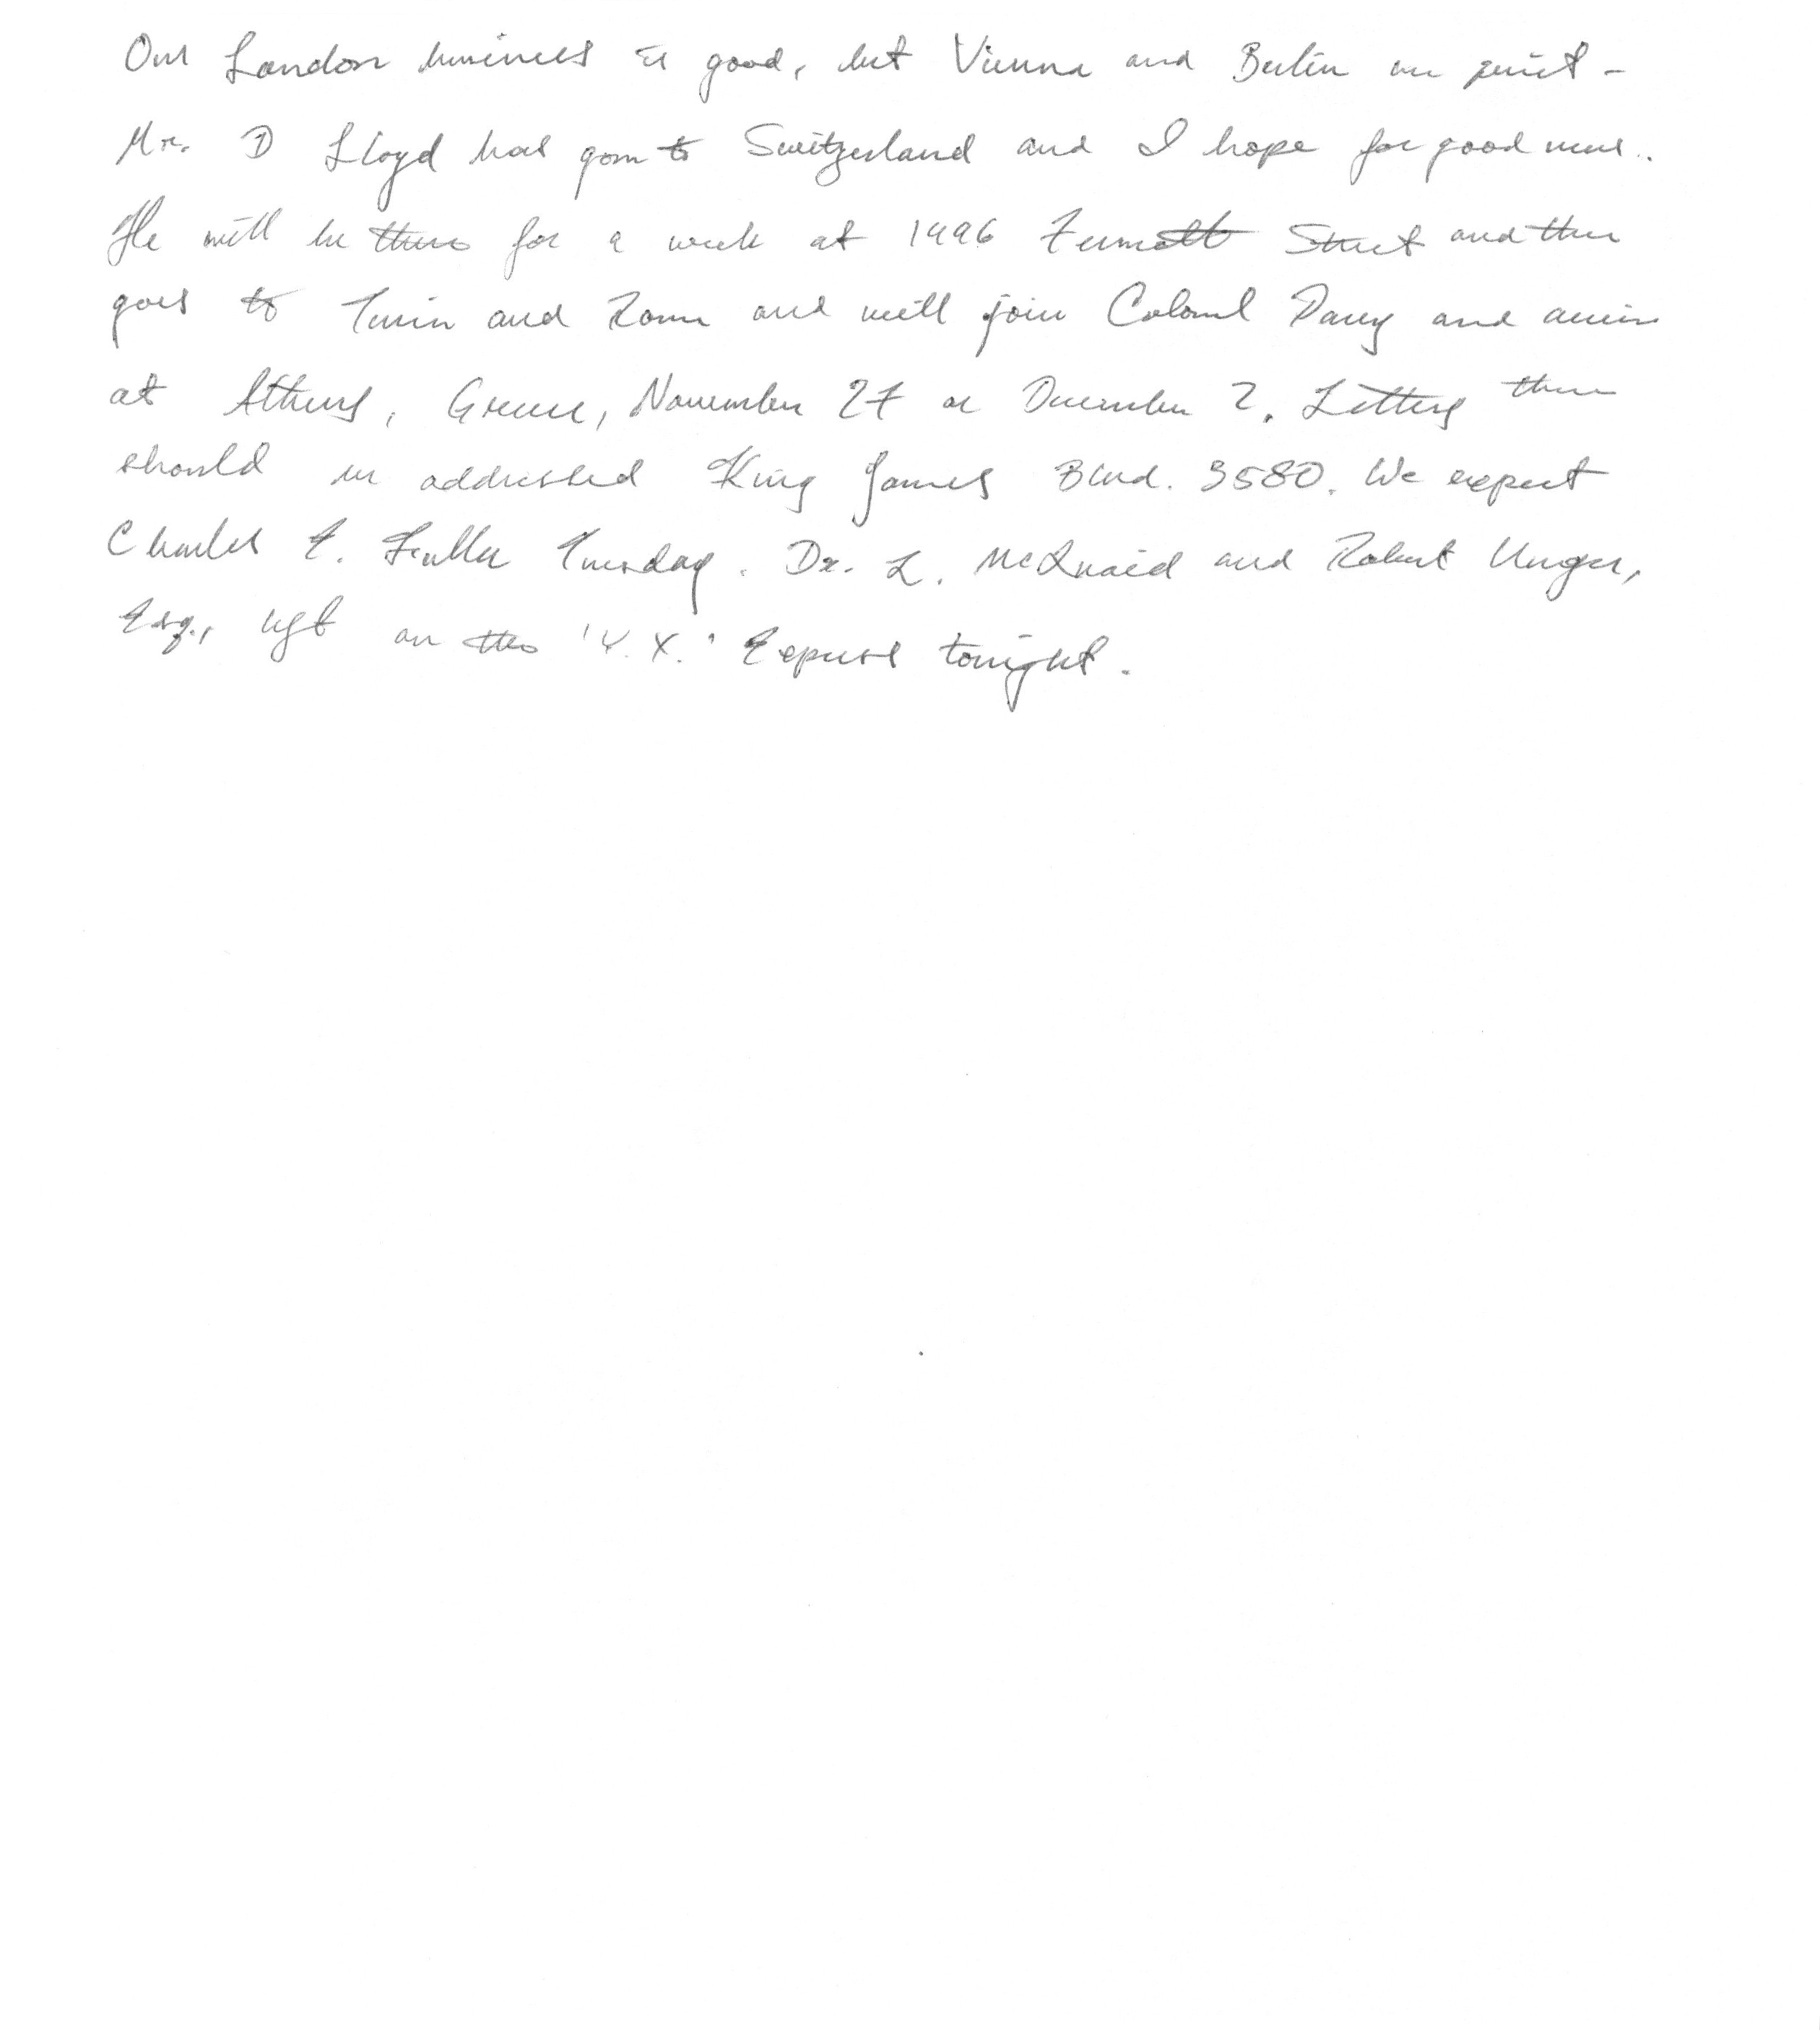 Our London business is good, but Vienna and Berlin are quiet -
Mr. D Lloyd has gone to Switzerland and I hope for good news..
He will be there for a week at 1496 Zermott Street and then
goes to Turin and Rome and will join Colonel Parry and arrive
at Athens, Greece, November 27 or December 2. Letters there
should be addressed King James Blvd. 3580. We expect
Charles E. Fuller Tuesday. Dr. L. McQuaid and Robert Unger,
Esq., left on the 'Y.X.' Express tonight.